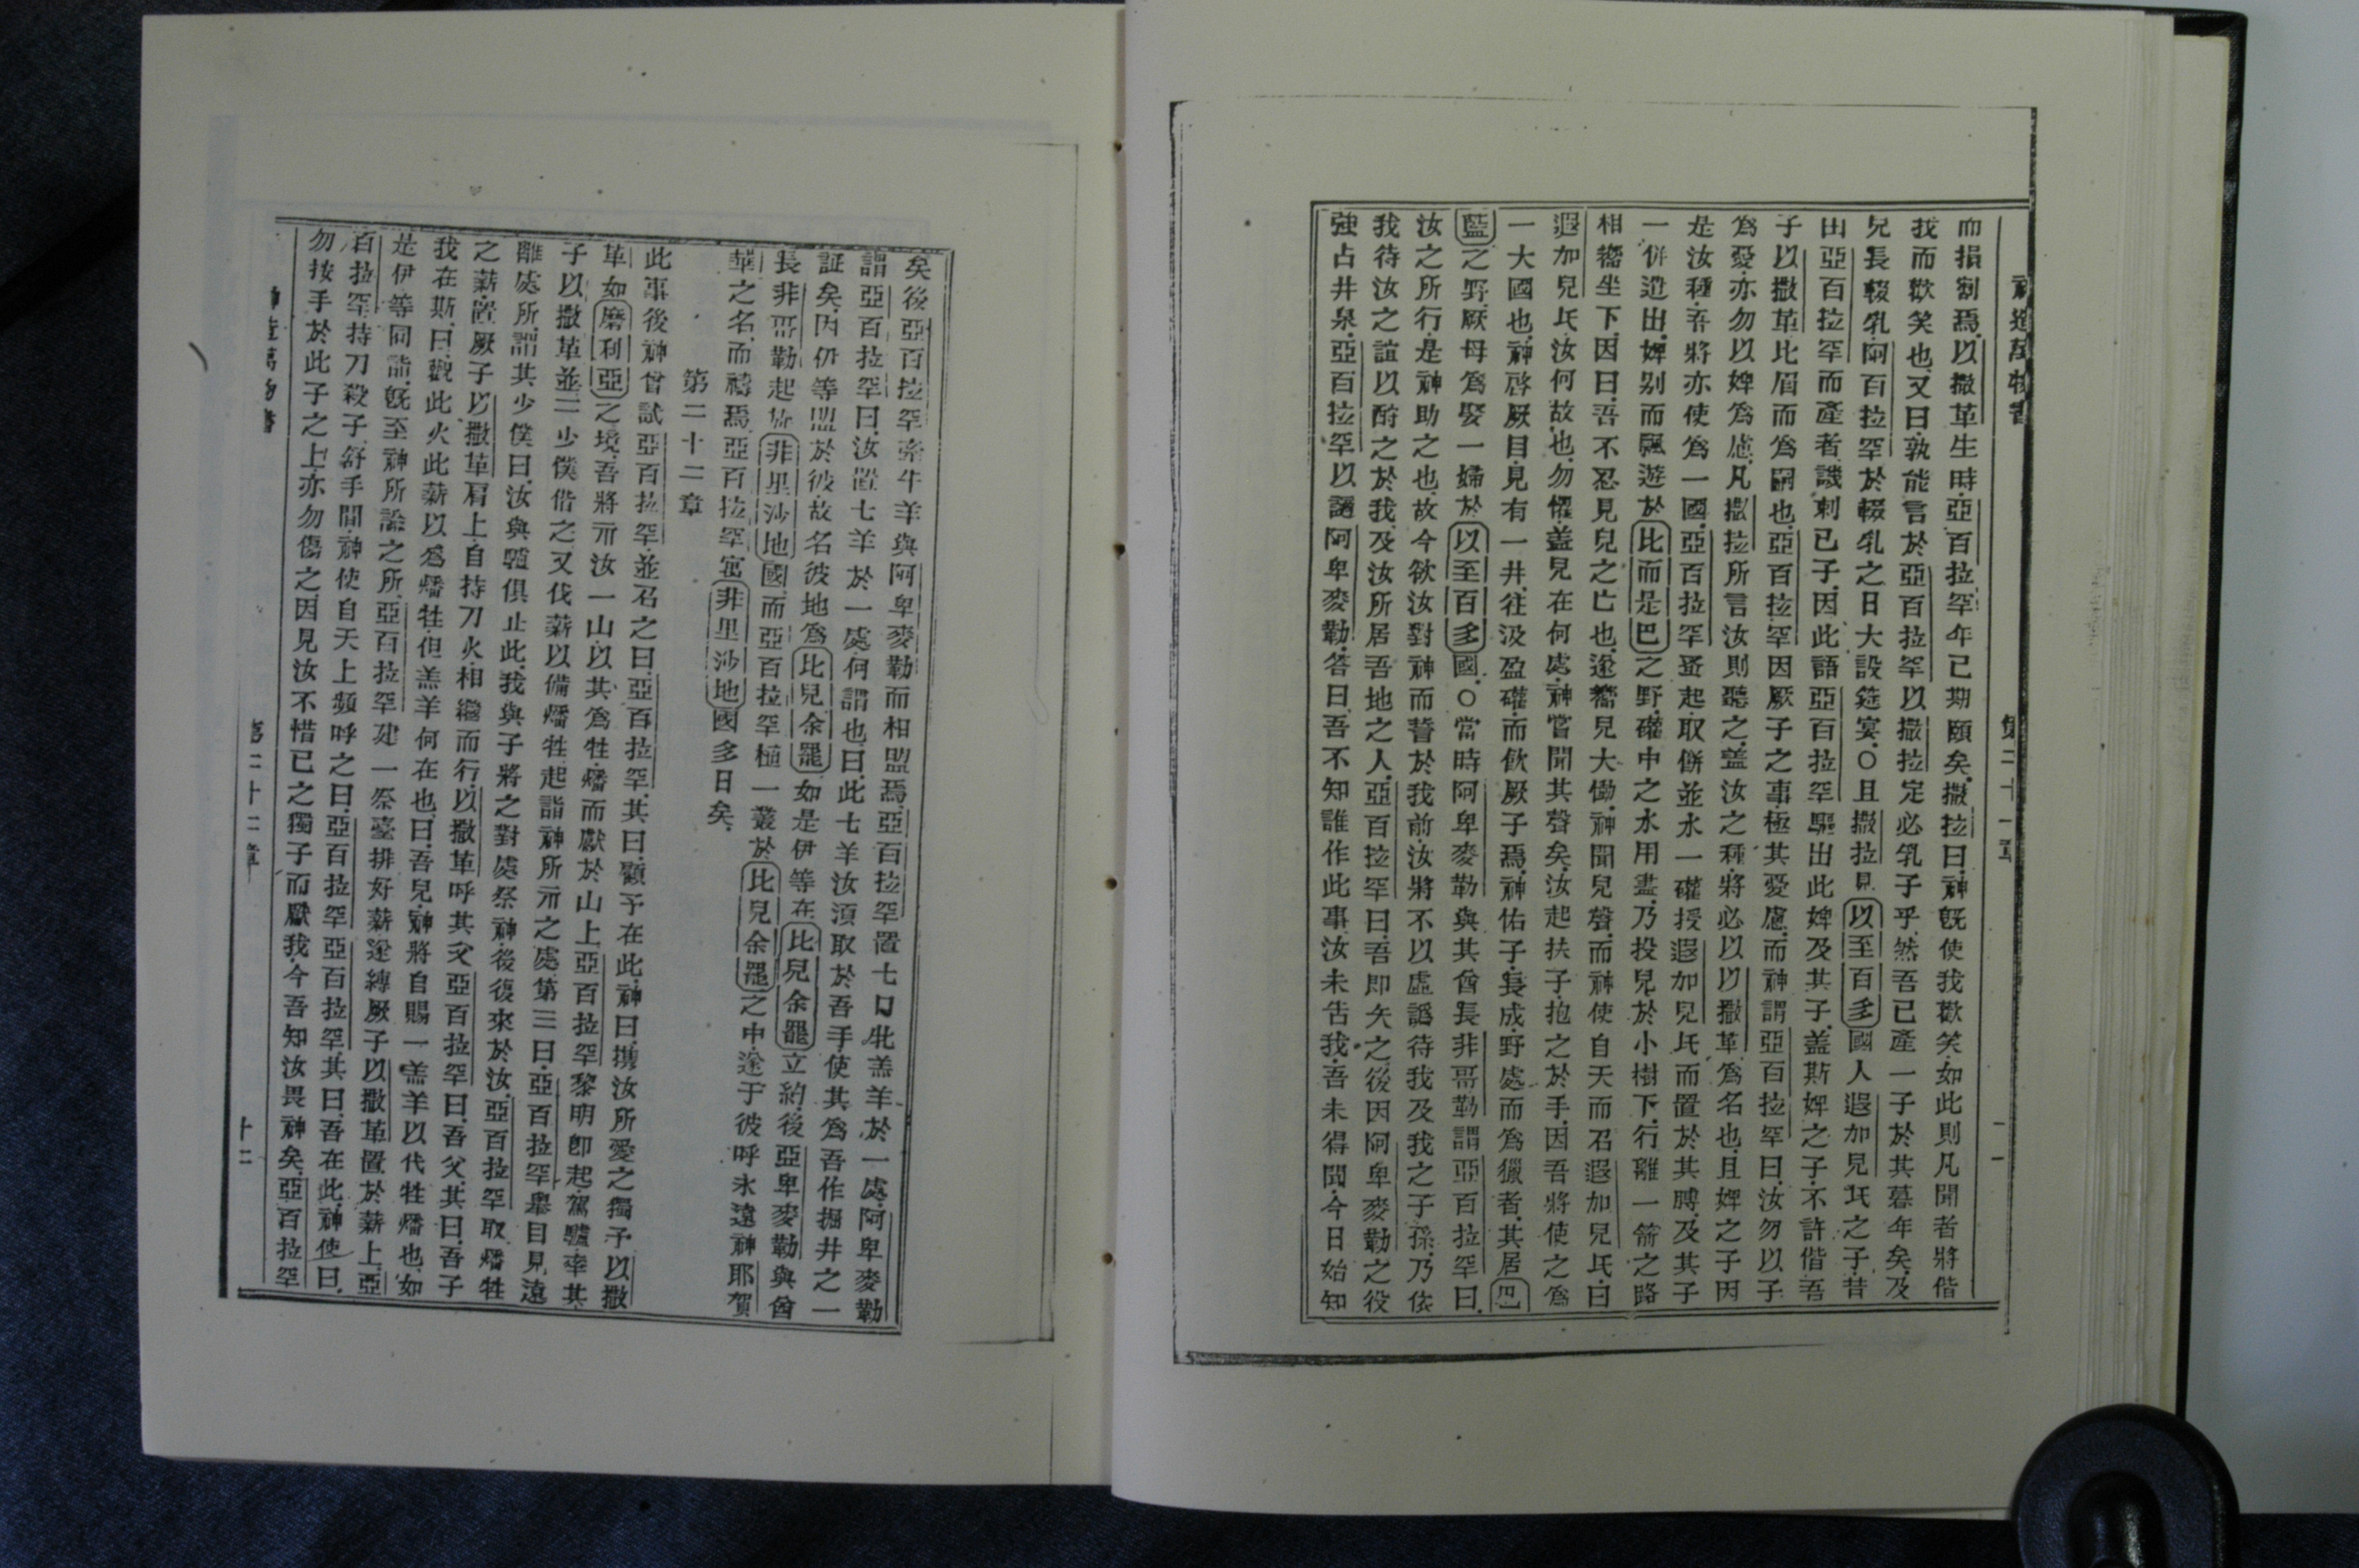 神造萬物書 第二十一章
而損割焉以撒革生時亞百拉罕年已期頤矣撒拉曰神旣使我歡笑如此則凡聞者將偕
我而歡笑也又曰孰能言於亞百拉罕以撒拉定必乳子乎然吾已產一子於其暮年矣及
兒長輟乳阿百拉罕於輟乳之日大設筵宴○且撒拉見以至百多國人遐加兒氏之子昔
由亞百拉罕而產者譏刺已子因此語亞百拉罕驅出此婢及其子蓋斯婢之子不許偕吾
子以撒革比眉而爲嗣也亞百拉罕因厥子之事極其愛慮而神謂亞百拉罕曰汝勿以子
爲憂亦勿以婢爲慮凡撒拉所言汝則聽之蓋汝之種將必以以撒革爲名也且婢之子因
是汝種吾將亦使爲一國亞百拉罕蚤起取餅並水一礶授遐加兒氏而置於其膊及其子
一併遣出婢别而飄遊於比而是巴之野礶中之水用盡乃投兒於小樹下行離一箭之路
相嚮坐下因曰吾不忍見兒之亡也遂嚮兒大慟神聞兒聲而神使自天而召遐加兒氏曰
遐加兒氏汝何故也勿懼蓋兒在何處神嘗聞其聲矣汝起扶子抱之於手因吾將使之爲
一大國也神啓厥目見有一井往汲盈礶而飲厥子焉神佑子長成野處而爲獵者其居巴
藍之野厥母爲娶一婦於以至百多國○當時阿卑麥勒與其酋長非哥勒謂亞百拉罕曰
汝之所行是神助之也故今欲汝對神而誓於我前汝將不以虛譌待我及我之子孫乃依
我待汝之誼以酧之於我及汝所居吾地之人亞百拉罕曰吾即矢之後因阿卑麥勒之役
強占井泉亞百拉罕以讁阿卑麥勒答曰吾不知誰作此事汝未告我吾未得聞今日始知
矣後亞百拉罕牽牛羊與阿卑麥勒而相盟焉亞百拉罕置七口牝羔羊於一處阿卑麥勒
謂亞百拉罕曰汝置七羊於一處何謂也曰此七羊汝須取於吾手使其爲吾作掘井之一
証矣因伊等盟於彼故名彼地爲比兒余罷如是伊等在比兒余罷立約後亞卑麥勒與酋
長非哥勒起旋非里沙地國而亞百拉罕植一叢於比兒余罷之中遂于彼呼永遠神耶賀
華之名而禱焉亞百拉罕寓非里沙地國多日矣
第二十二章
此事後神曾試亞百拉罕並召之曰亞百拉罕其曰顧予在此神曰攜汝所愛之獨子以撒
革如磨利亞之境吾將示汝一山以其爲牲燔而獻於山上亞百拉罕黎明卽起駕驢率其
子以撒革並二少僕偕之又伐薪以備燔牲起詣神所示之處第三日亞百拉罕舉目見遠
離處所謂其少僕曰汝與驢俱止此我與子將之對處祭神後復來於汝亞百拉罕取燔牲
之薪置厥子以撒革肩上自持刀火相繼而行以撒革呼其父亞百拉罕曰吾父其曰吾子
我在斯曰觀此火此薪以爲燔牲但羔羊何在也曰吾兒神將自賜一羔羊以代牲燔也如
是伊等同詣旣至神所諭之所亞百拉罕建一祭臺排好薪遂縛厥子以撒革置於薪上亞
百拉罕持刀殺子舒手間神使自天上頻呼之曰亞百拉罕亞百拉罕其曰吾在此神使曰
勿按手於此子之上亦勿傷之因見汝不惜已之獨子而獻我今吾知汝畏神矣亞百拉罕
神造萬物書 第二十二章 十二